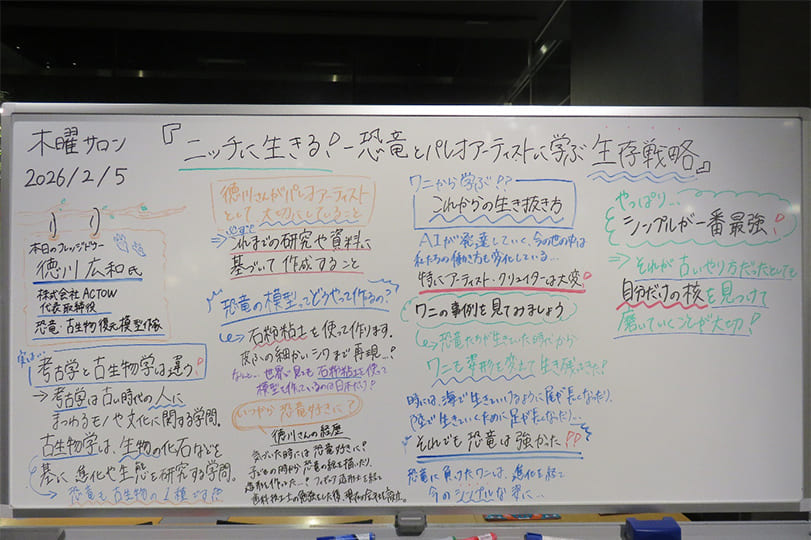 木曜サロン
2026/2/5
『ニッチに生きる!-恐竜とパレオアーティストに学ぶ 生存戦略』
本日のナレッジドナー
徳川 広和 氏
株式会社 ACTOW
代表取締役
恐竜・古生物復元模型作家
実は…
考古学と古生物学は違う!
→ 考古学は古い時代の人に
まつわるモノや文化に関する学問。
古生物学は、生物の化石などを
基に進化や生態を研究する学問。
→ 恐竜も古生物の1種です
徳川さんがパレオアーティスト
として大切にしていること
⇒ これまでの研究や資料に
基づいて作成すること
恐竜の模型ってどうやって作るの?
↳ 石粉粘土を使って作ります。
皮ふの細かいシワまで再現…!
なんと…世界で見ても石粉粘土を使って
模型を作っているのは日本だけ!
いつから恐竜好きに?
徳川さんの経歴
気づいた時には恐竜好きに!
子どもの頃から恐竜の絵を描いたり、
造形を作ったり…!
ワニから学ぶ!?
これからの生き抜き方
AIが発達していく、今の世の中は
私たちの働き方も変化している…
特にアーティスト・クリエイターは大変!
ワニの事例を見てみましょう
↳ 恐竜たちが生きていた時代から
ワニも姿形を変えて生き残ってきた!
時には、海で生きていけるように尾が長くなったり、
陸で生きていくために足が長くなったり…
それでも恐竜は強かった!!
恐竜に負けたワニは、進化を経て
今のシンプルな姿に…
やっぱり…
シンプルが一番最強!
⇒ それが古いやり方だったとしても
自分だけの核を見つけて
磨いていくことが大切!